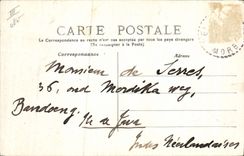 CARTE POSTALE
La Correspondance au recto n'est pas acceptée par tous les pays étrangers
(Se renseigner à la Poste)
Correspondance
Adresse
Monsieur de Serres,
36, oud Mordika weg,
Bandoeng, Ile de Java
Indes Néerlandaises